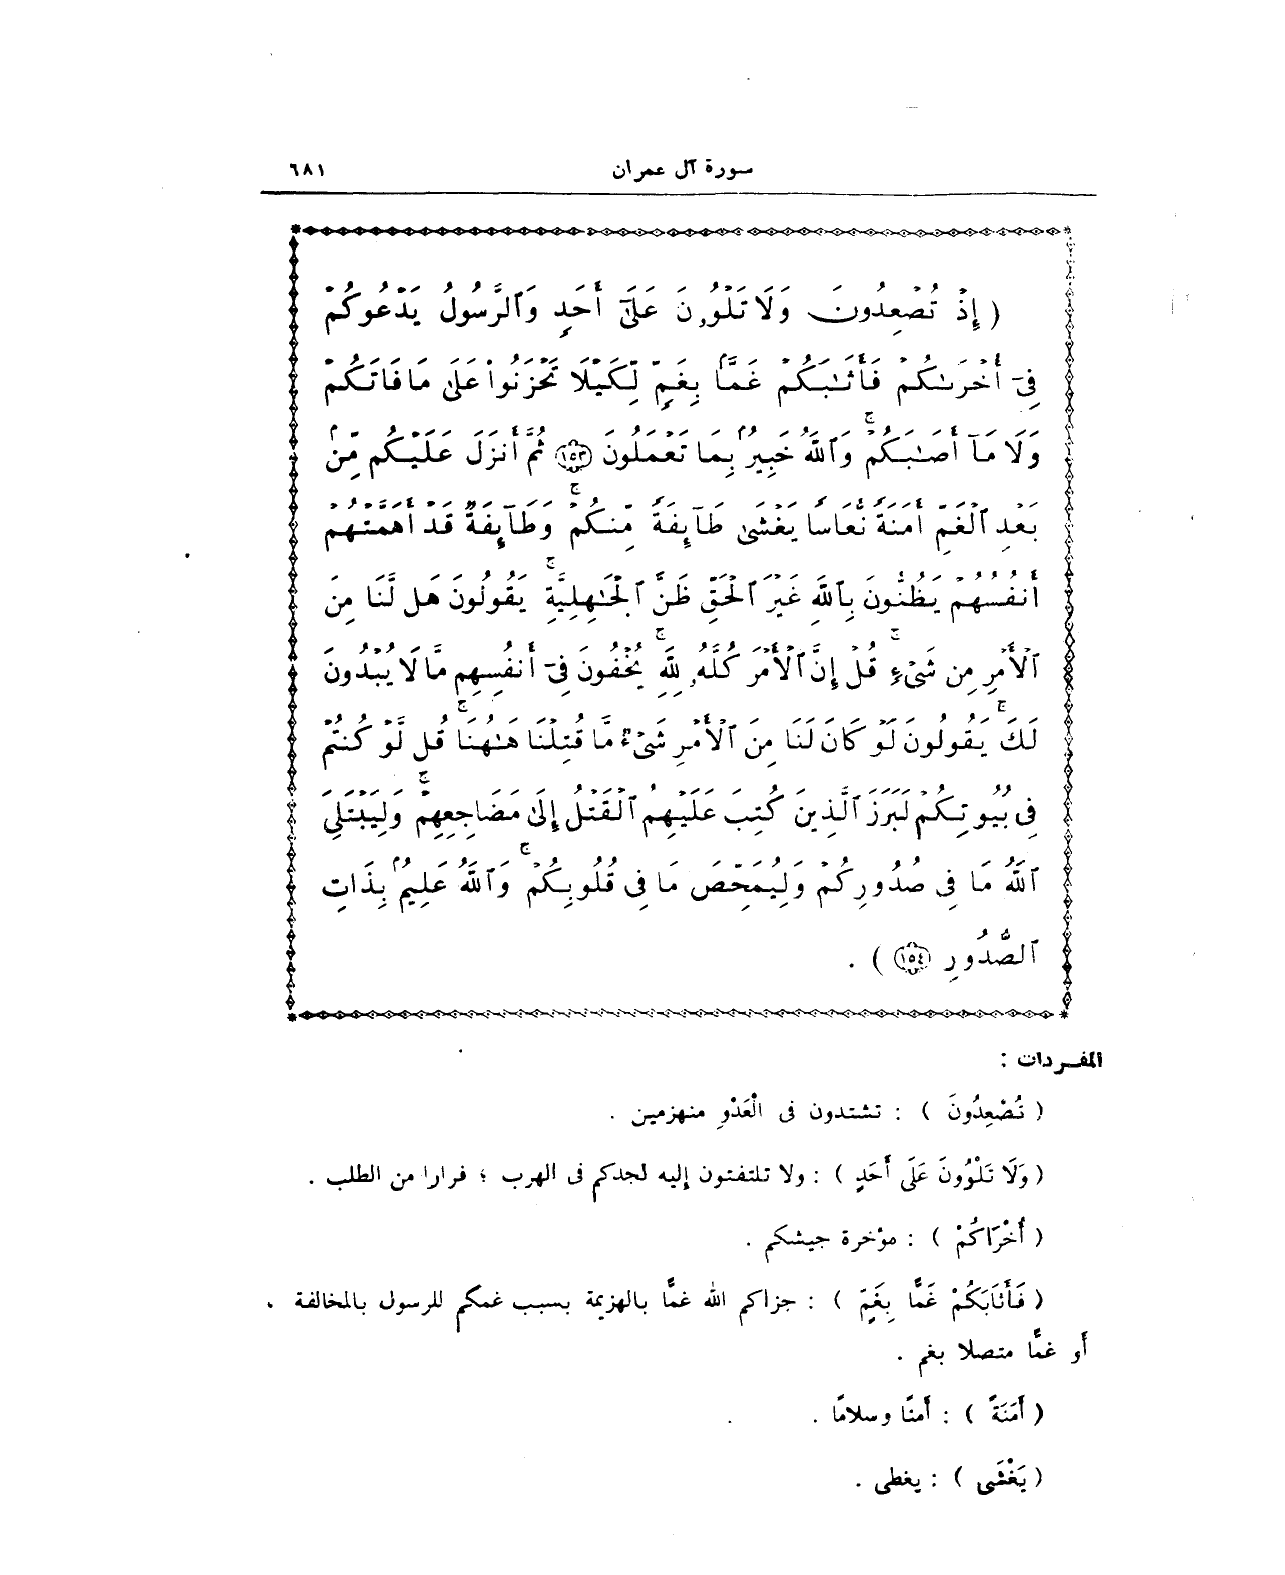 سورة آل عمران ٦٨١
( إِذْ تُصْعِدُونَ وَلَا تَلْوُۥنَ عَلَىٰٓ أَحَدٍ وَٱلرَّسُولُ يَدْعُوكُمْ
فِىٓ أُخْرَىٰكُمْ فَأَثَٰبَكُمْ غَمًّۢا بِغَمٍّ لِّكَيْلَا تَحْزَنُوا۟ عَلَىٰ مَا فَاتَكُمْ
وَلَا مَآ أَصَٰبَكُمْ ۗ وَٱللَّهُ خَبِيرٌۢ بِمَا تَعْمَلُونَ ١٥٣ ثُمَّ أَنزَلَ عَلَيْكُم مِّنۢ
بَعْدِ ٱلْغَمِّ أَمَنَةً نُّعَاسًا يَغْشَىٰ طَآئِفَةً مِّنكُمْ ۖ وَطَآئِفَةٌ قَدْ أَهَمَّتْهُمْ
أَنفُسُهُمْ يَظُنُّونَ بِٱللَّهِ غَيْرَ ٱلْحَقِّ ظَنَّ ٱلْجَٰهِلِيَّةِ ۖ يَقُولُونَ هَل لَّنَا مِنَ
ٱلْأَمْرِ مِن شَىْءٍ ۗ قُلْ إِنَّ ٱلْأَمْرَ كُلَّهُۥ لِلَّهِ ۗ يُخْفُونَ فِىٓ أَنفُسِهِم مَّا لَا يُبْدُونَ
لَكَ ۖ يَقُولُونَ لَوْ كَانَ لَنَا مِنَ ٱلْأَمْرِ شَىْءٌ مَّا قُتِلْنَا هَٰهُنَا ۗ قُل لَّوْ كُنتُمْ
فِى بُيُوتِكُمْ لَبَرَزَ ٱلَّذِينَ كُتِبَ عَلَيْهِمُ ٱلْقَتْلُ إِلَىٰ مَضَاجِعِهِمْ ۖ وَلِيَبْتَلِىَ
ٱللَّهُ مَا فِى صُدُورِكُمْ وَلِيُمَحِّصَ مَا فِى قُلُوبِكُمْ ۗ وَٱللَّهُ عَلِيمٌۢ بِذَاتِ
ٱلصُّدُورِ ١٥٤ ) .
المفـردات :
( تُصْعِدُونَ ) : تشتدون فى الْعَدْوِ منهزمين .
( وَلَا تَلْوُونَ عَلَى أَحَدٍ ) : ولا تلتفتون إليه لجدكم فى الهرب ؛ فرارا من الطلب .
( أُخْرَاكُمْ ) : مؤخرة جيشكم .
( فَأَثَابَكُمْ غَمًّا بِغَمٍّ ) : جزاكم الله غمًّا بالهزيمة بسبب غمكم للرسول بالمخالفة .
أو غمًّا متصلا بغم .
( أَمَنَةً ) : أمنًا وسلامًا .
( يَغْشَى ) : يغطى .